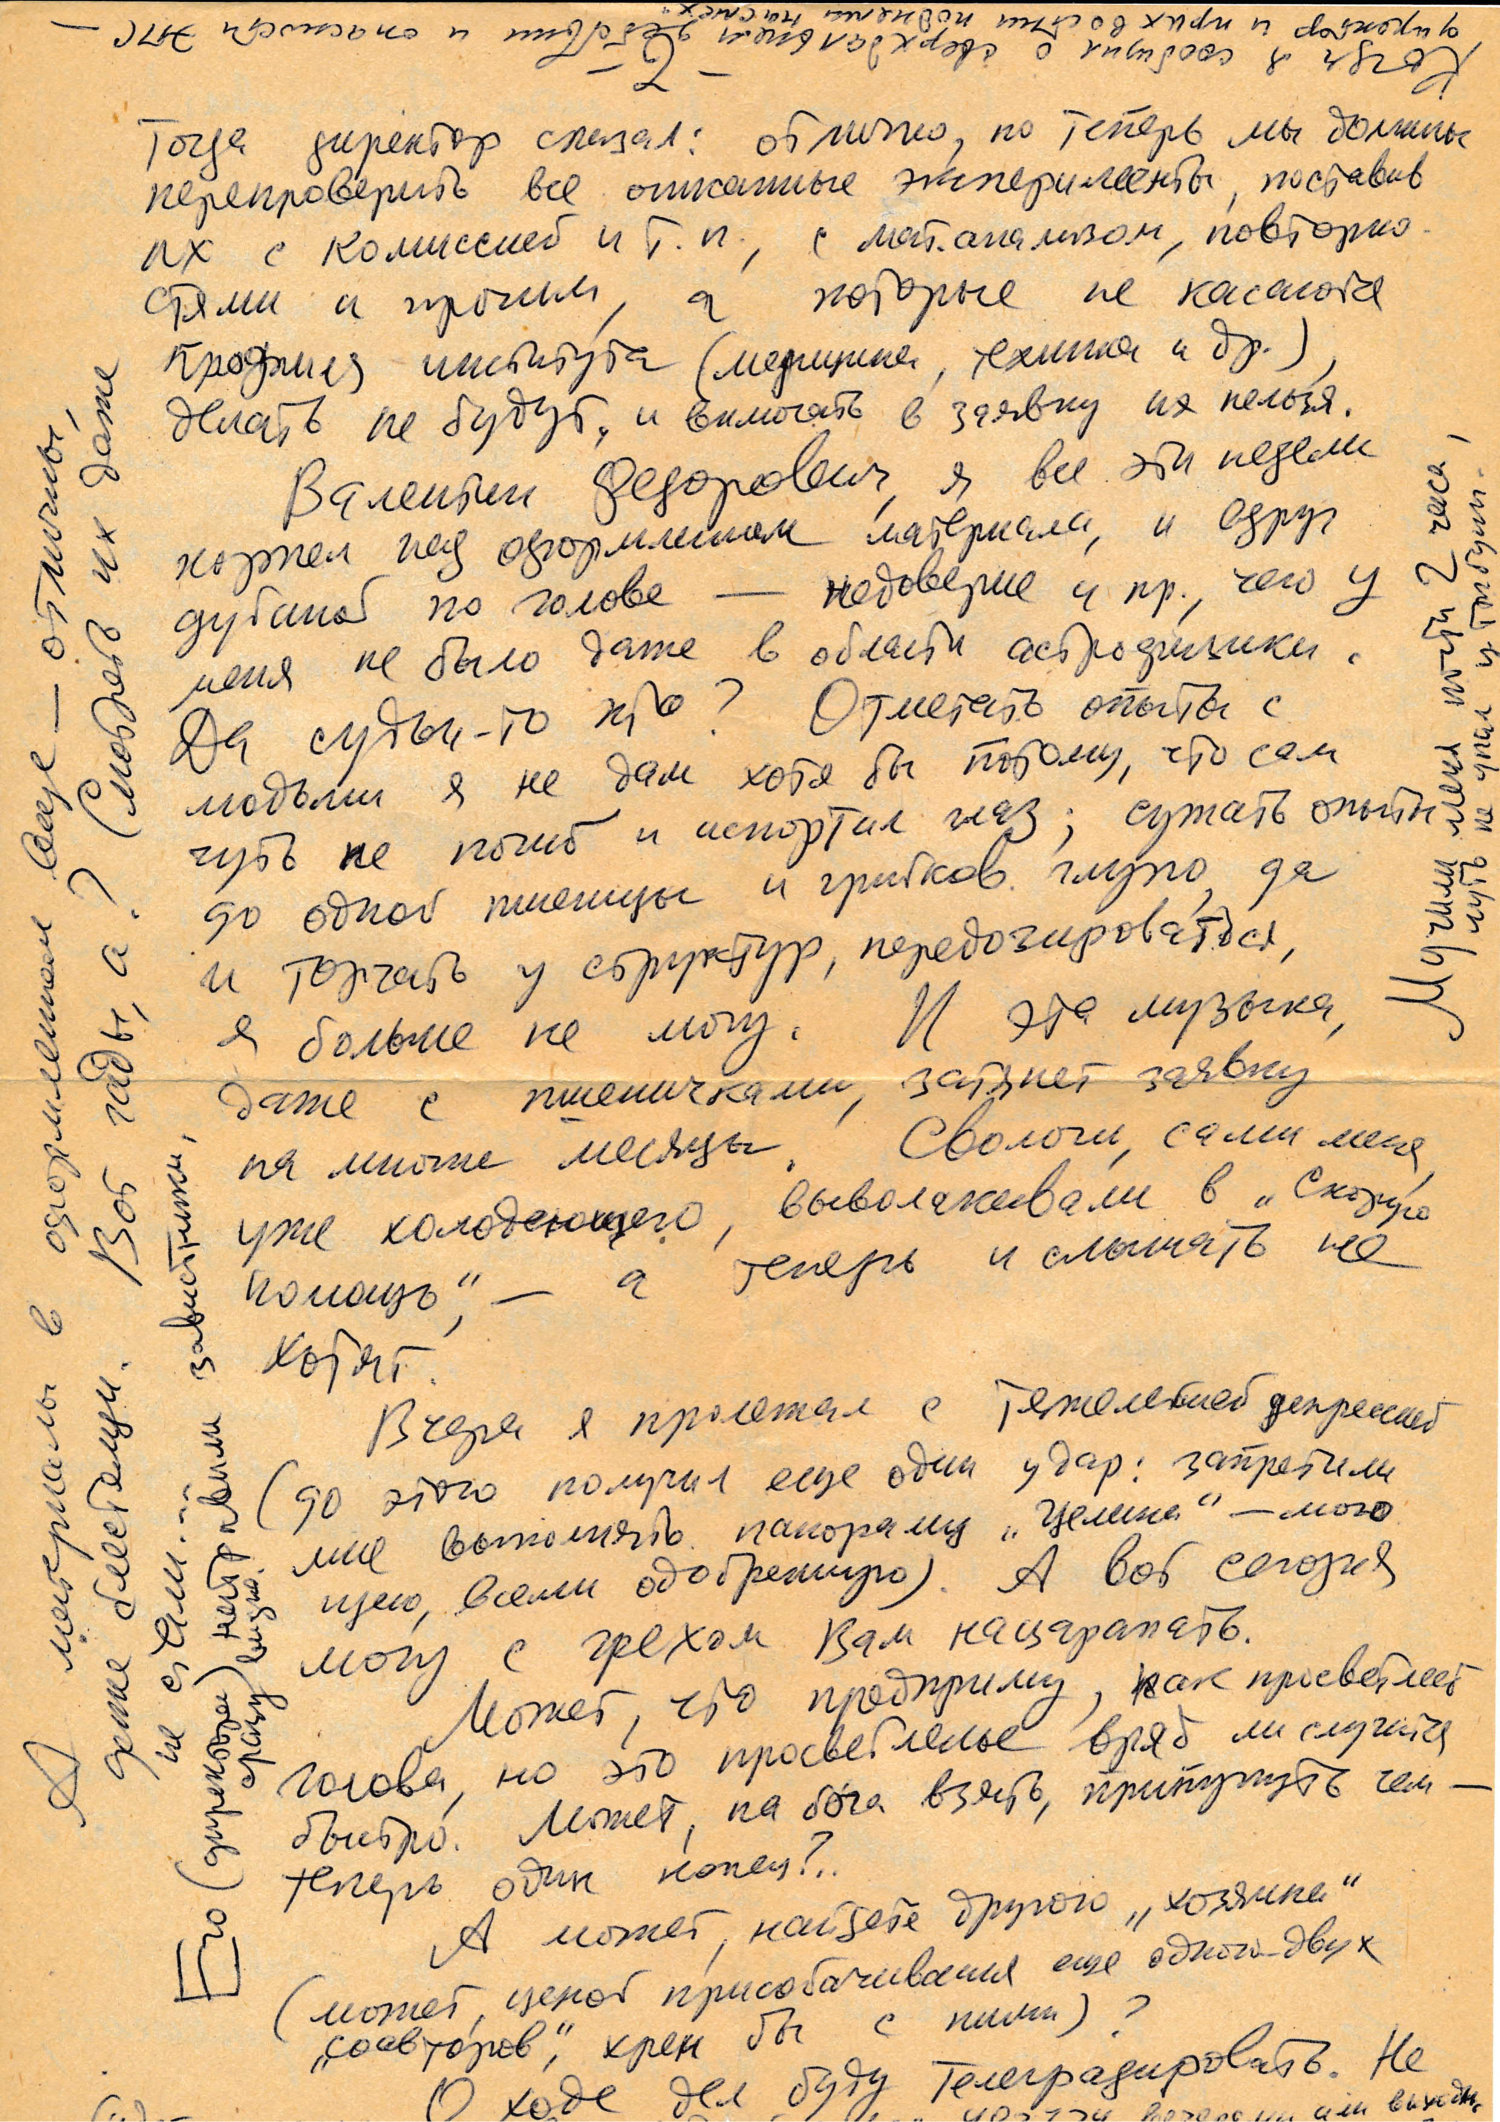 Когда я сообщил о сверхдальнем действии и опасности ЭПС —
директор и прихвостни подняли насмех.
— 2 —
Тогда директор сказал: отлично, но теперь мы должны
перепроверить все описанные эксперименты, поставив
их с комиссией и т.п., с мат.анализом, повторно-
стями и прочим, а которые не касаются
профиля института (медицина, техника и др.),
делать не будут, и включать в заявку их нельзя.
Валентин Федорович, я все эти недели
корпел над оформлением материала, и вдруг
дубиной по голове — недоверие и пр., чего у
меня не было даже в области астрофизики.
Да судьи-то кто? Отметать опыты с
людьми я не дам хотя бы потому, что сам
чуть не погиб и испортил глаз; сужать опыты
до одной пшеницы и грибков глупо, да
и торчать у структур, передозироваться,
я больше не могу. И эта музыка,
даже с пшеничками, затянет заявку
на многие месяцы. Сволочи, сами меня,
уже холодеющего, выволакивали в „Скорую
помощь“, — а теперь и слышать не
хотят.
Вчера я пролежал с тяжелейшей депрессией
(до этого получил еще один удар: запретили
мне выполнять панораму „Целина“ — мою
идею, всеми одобренную). А вот сегодня
могу с грехом Вам нацарапать.
Может, что предприму, как просветлеет
голова, но это просветленье вряд ли случится
быстро. Может, на бога взять, припугнуть чем —
теперь один конец?..
А может, найдете другого „хозяина“
(может, ценой присобачивания еще одного-двух
„соавторов“, хрен бы с ними)?
О ходе дел буду телеграфировать. Не
вечерами или выходн.
Мучили меня почти 2 часа,
чуть не упал у трибуны.
А материалы в оформленном виде — отличны,
даже блестящи. Вот гады, а? Смотреть их даже
не стали...
завистники,
Его (директора) натравили
сразу видно.